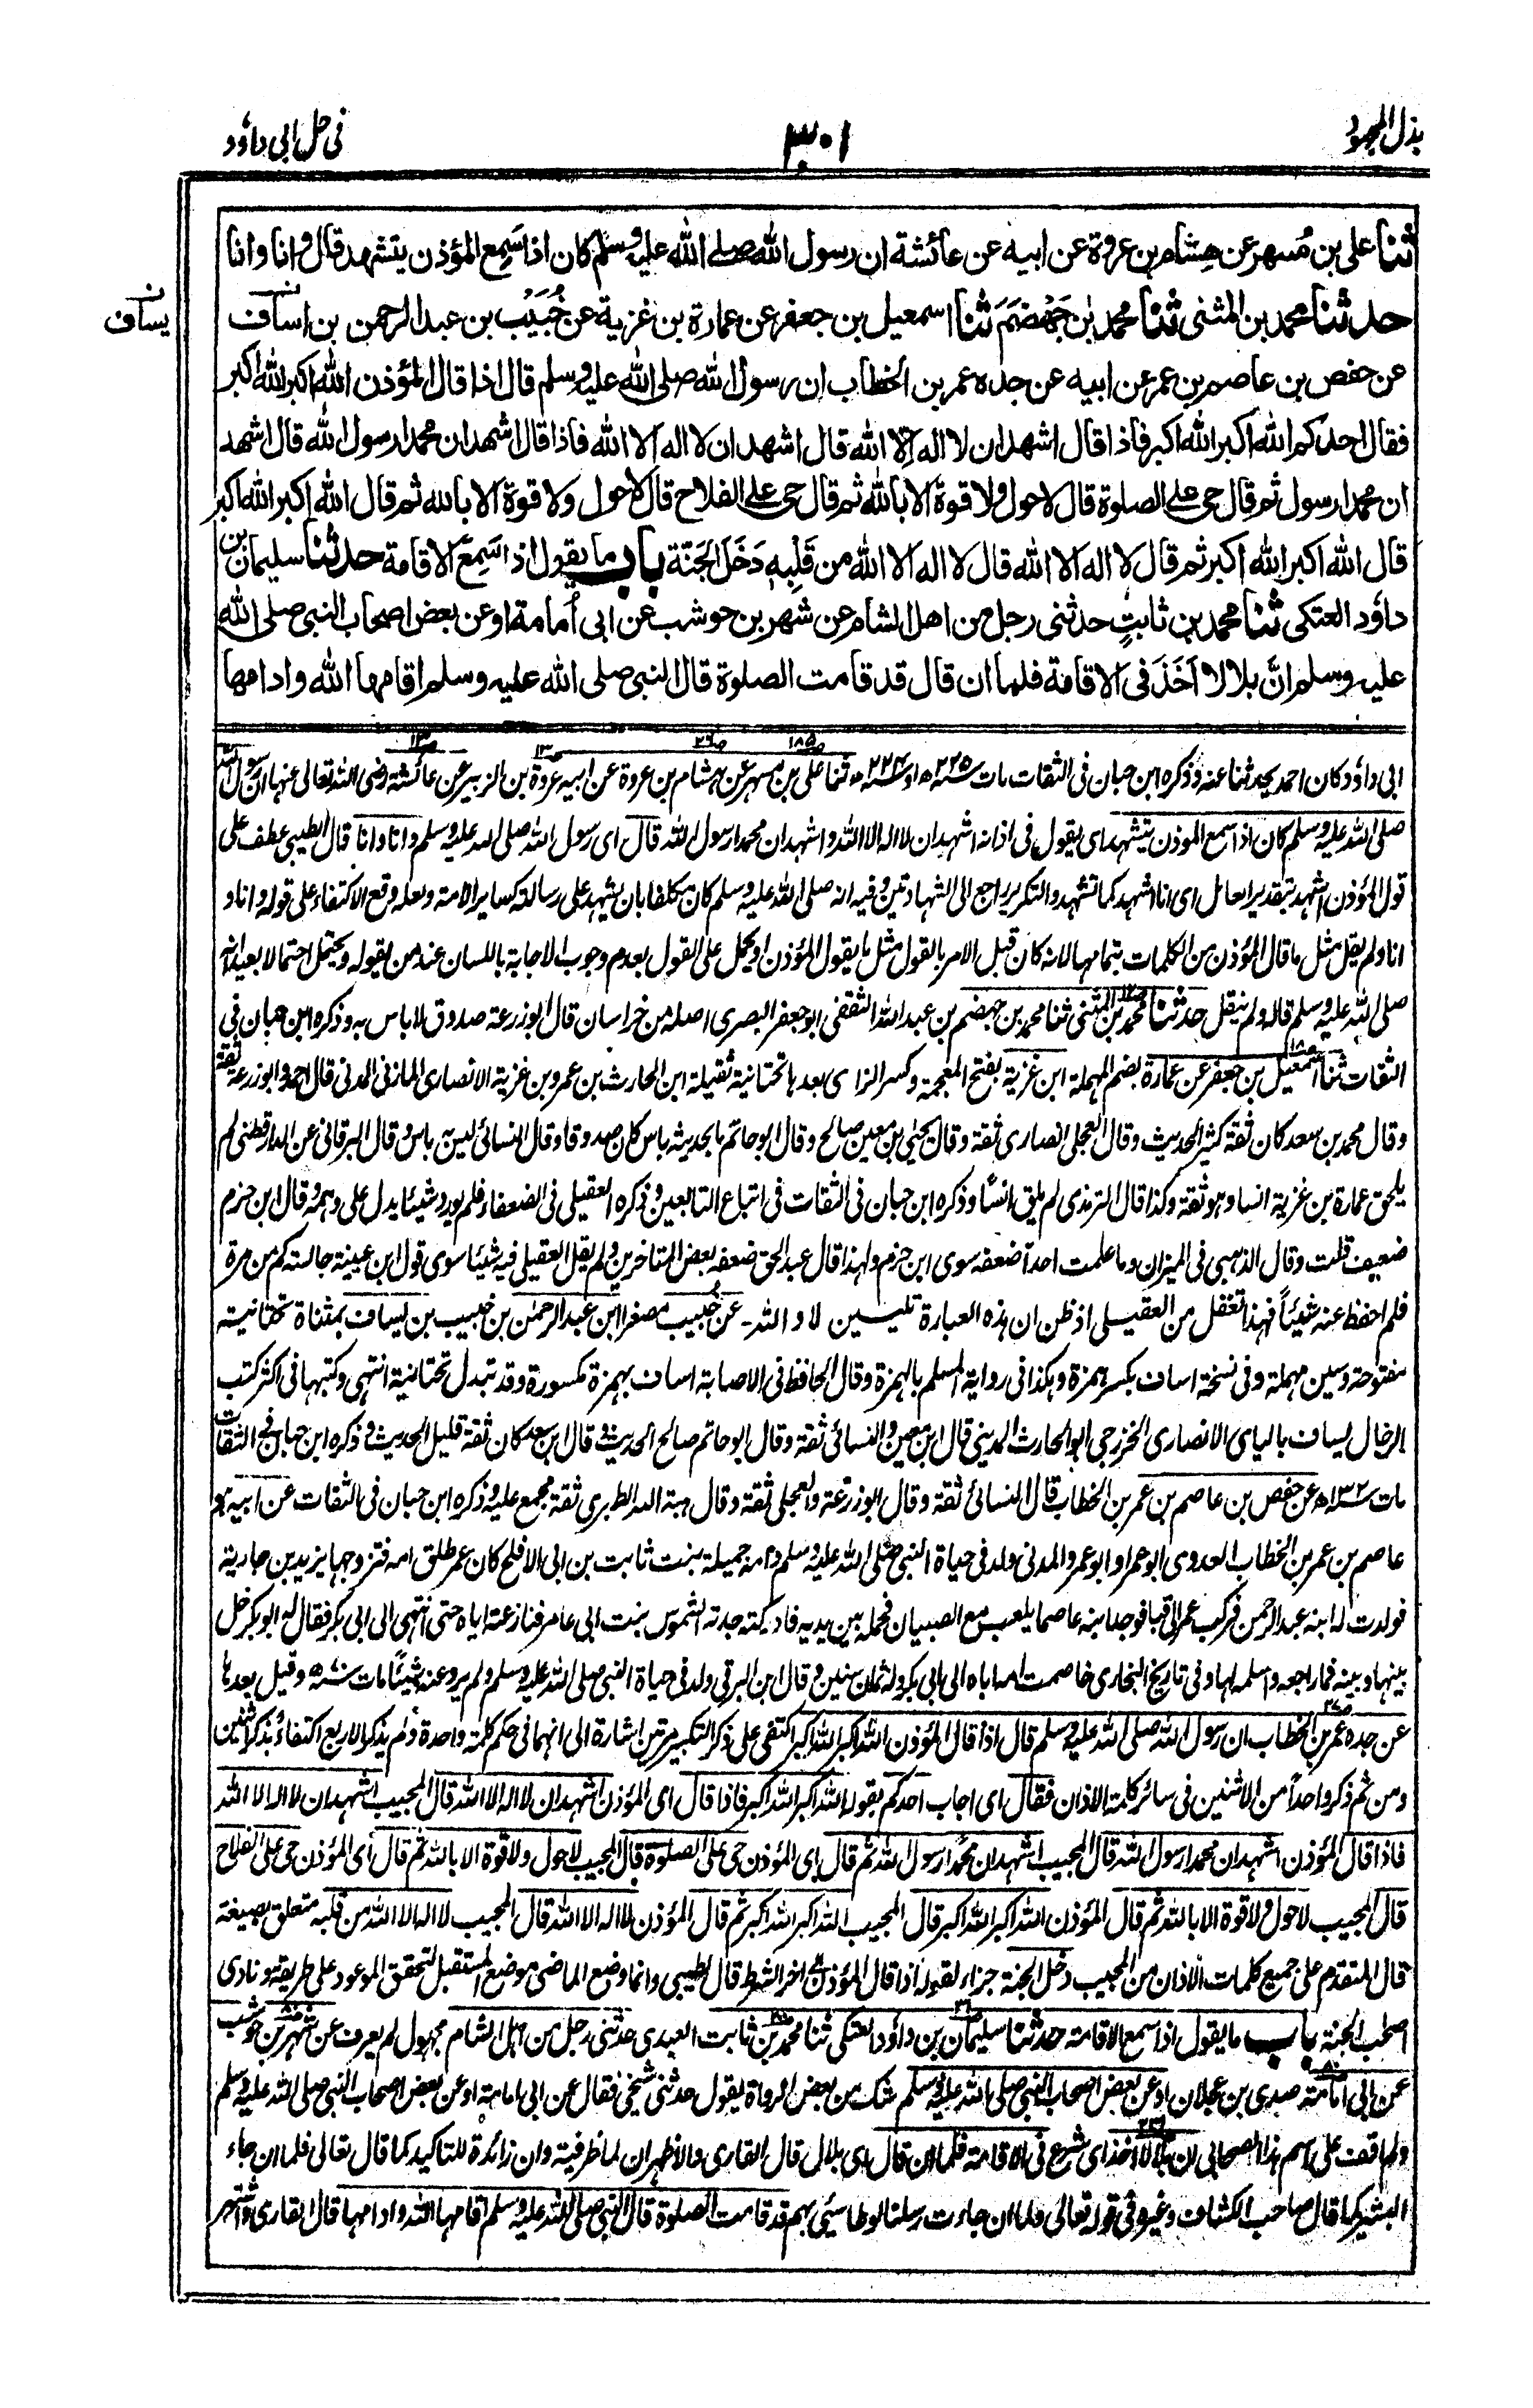 بذل المجهود
٣٠١
فى حل ابى داؤد
ثنا على بن مُسهر عن هِشام بن عروة عن ابيه عن عائشة ان رسول الله صلى الله عليه وسلم كان اذا سَمِع المؤذن يتشهد قال وانا وانا
حدثنا محمد بن المثنى ثنا محمد بن جَهْضَم ثنا اسمعيل بن جعفر عن عمارة بن غزية عن خُبَيْب بن عبد الرحمن بن اساف
يساف
عن حفص بن عاصم بن عمر عن ابيه عن جده عمر بن الخطاب ان رسول الله صلى الله عليه وسلم قال اذا قال المؤذن الله اكبر الله اكبر
فقال احدكم الله اكبر الله اكبر فاذا قال اشهد ان لا اله الا الله قال اشهد ان لا اله الا الله فاذا قال اشهد ان محمدا رسول الله قال اشهد
ان محمدا رسول ثم قال حى على الصلوة قال لا حول ولا قوة الا بالله ثم قال حى على الفلاح قال لا حول ولا قوة الا بالله ثم قال الله اكبر الله اكبر
قال الله اكبر الله اكبر ثم قال لا اله الا الله قال لا اله الا الله من قَلْبِه دَخَلَ الجَنّة باب ما يقول اذا سَمِعَ الاقامة حدثنا سليمان بن
داؤد العتكى ثنا محمد بن ثابتٍ حدثنى رجل من اهل الشام عن شهر بن حوشب عن ابى اُمامة او عن بعض اصحاب النبى صلى الله
عليه وسلم انَّ بلالا اَخَذَ فى الاقامة فلما ان قال قد قامت الصلوة قال النبى صلى الله عليه وسلم اقامها الله وادامها
ابى داؤد كان احمد يحدثنا عنه وذكره ابن حبان فى الثقات مات ٢٢٥ھ او ٢٢٤ھ ثنا على بن مسهر عن هشام بن عروة عن ابيه عروة بن الزبير عن عائشة رضى الله تعالى عنها ان رسول الله
صلى الله عليه وسلم كان اذا سمع المؤذن يتشهد اى يقول فى اذانه اشهد ان لا اله الا الله واشهد ان محمدا رسول الله قال اى رسول الله صلى الله عليه وسلم وانا وانا قال الطيبى عطف على
قول المؤذن اشهد بتقدير العامل اى انا اشهد كما تشهد والتكرير راجع الى الشهادتين وفيه انه صلى الله عليه وسلم كان مكلفا بان يشهد على رسالته كسائر الامة ولعله وقع الاكتفاء على قوله وانا و
انا ولم يقل مثل ما قال المؤذن من الكلمات بتمامها لانه كان قبل الامر بالقول مثل ما يقول المؤذن او يحمل على القول بعدم وجوب الاجابة باللسان عند من يقوله ويحتمل احتمالا بعيدا انه
صلى الله عليه وسلم قاله ولم ينقل حدثنا محمد بن المثنى ثنا محمد بن جهضم بن عبد الله الثقفى ابو جعفر البصرى اصله من خراسان قال ابو زرعة صدوق لا باس به وذكره ابن حبان فى
الثقات ثنا اسمعيل بن جعفر عن عمارة بضم المهملة ابن غزية بفتح المعجمة وكسر الزاى بعدها تحتانية ثقيلة ابن الحارث بن عمرو بن غزية الانصارى المازنى المدنى قال احمد وابو زرعة ثقة
وقال محمد بن سعد كان ثقة كثير الحديث وقال العجلى انصارى ثقة وقال يحيى بن معين صالح وقال ابو حاتم ما بحديثه باس كان صدوقا وقال النسائى ليس به باس وقال البرقانى عن الدارقطنى لم
يلحق عمارة بن غزية انسا وهو ثقة وكذا قال الترمذى لم يلق انسًا وذكره ابن حبان فى الثقات فى اتباع التابعين وذكره العقيلى فى الضعفاء فلم يورد شيئا يدل على وهمه وقال ابن حزم
ضعيف قلت وقال الذهبى فى الميزان وما علمت احداً ضعفه سوى ابن حزم ولهذا قال عبد الحق ضعفه بعض المتاخرين ولم يقل العقيلى فيه شيئا سوى قول ابن عيينة جالسته كم من مرة
فلم احفظ عنه شيئاً فهذا تغفل من العقيلى اذ ظن ان هذه العبارة تليين لا والله۔ عن خُبيب مصغرا ابن عبد الرحمٰن بن خبيب بن يساف بمثناة تحتانية
مفتوحة وسين مهملة وفى نسخة اساف بكسر همزة وهكذا فى رواية المسلم بالهمزة وقال الحافظ فى الاصابة اساف بهمزة مكسورة وقد تبدل تحتانية انتهى وكتبها فى اكثر كتب
الرجال يساف بالياى الانصارى الخزرجى ابو الحارث المدينى قال ابن معين والنسائى ثقة وقال ابو حاتم صالح الحديث وقال ابن سعد كان ثقة قليل الحديث وذكره ابن حبان فى الثقات
مات ١٣٢ھ عن حفص بن عاصم بن عمر بن الخطاب قال النسائى ثقة وقال ابو زرعة والعجلى ثقة وقال هبة الله الطبرى ثقة مجمع عليه وذكره ابن حبان فى الثقات عن ابيه هو
عاصم بن عمر بن الخطاب العدوى ابو عمر او ابو عمرو المدنى ولد فى حياة النبى صلى الله عليه وسلم وامه جميلة بنت ثابت بن ابى الافلح كان عمر طلق امه فتزوجها يزيد بن جارية
فولدت له ابنه عبد الرحمن فركب عمر الى قبا فوجد ابنه عاصما يلعب مع الصبيان فحمله بين يديه فادركته جدته الشموس بنت ابى عامر فنازعته اياه حتى انتهى الى ابى بكر فقال له ابو بكر خل
بينها وبينه فما راجعه واسلمه لها وفى تاريخ البخارى خاصمت امه اباه الى ابى بكر وله ثمان سنين وقال ابن البرقى ولد فى حياة النبى صلى الله عليه وسلم ولم يرو عنه شيئًا مات ٧٠ھ وقيل بعدها
عن جده عمر بن الخطاب ان رسول الله صلى الله عليه وسلم قال اذا قال المؤذن الله اكبر الله اكبر اكتفى على ذكر التكبير مرتين اشارة الى انهما فى حكم كلمة واحدة ولم يذكر الاربع اكتفاءً بذكر اثنين
ومن ثم ذكروا احداً من الاثنين فى سائر كلمة الاذان فقال اى اجاب احدكم بقوله الله اكبر الله اكبر فاذا قال اى المؤذن اشهد ان لا اله الا الله قال المجيب اشهد ان لا اله الا الله
فاذا قال المؤذن اشهد ان محمدا رسول الله قال المجيب اشهد ان محمدا رسول الله ثم قال اى المؤذن حى على الصلوة قال المجيب لا حول ولا قوة الا بالله ثم قال اى المؤذن حى على الفلاح
قال المجيب لا حول ولا قوة الا بالله ثم قال المؤذن الله اكبر الله اكبر قال المجيب الله اكبر الله اكبر ثم قال المؤذن لا اله الا الله قال المجيب لا اله الا الله من قلبه متعلق بصيغة
قال المتقدم على جميع كلمات الاذان من المجيب دخل الجنة جزاء لقوله اذا قال المؤذن الى اخر الشرط قال الطيبى وانما وضع الماضى موضع المستقبل لتحقق الموعود على طريقة ونادى
اصحٰب الجنة باب ما يقول اذا سمع الاقامة حدثنا سليمان بن داؤد العتكى ثنا محمد بن ثابت العبدى حدثنى رجل من اهل الشام مجهول لم يعرف عن شهر بن حوشب
عن ابى امامة صدى بن عجلان او عن بعض اصحاب النبى صلى الله عليه وسلم شك من بعض الرواة يقول حدثنى شيخى فقال عن ابى امامة او عن بعض اصحاب النبى صلى الله عليه وسلم
ولم اقف على اسم هذا الصحابى ان بلالا اخذ اى شرع فى الاقامة فلما ان قال اى بلال قال القارى والاظهر ان لما ظرفية وان زائدة للتاكيد كما قال تعالى فلما ان جاء
البشير كما قال صاحب الكشاف وغيره فى قوله تعالى ولما ان جاءت رسلنا لوطا سيئ بهم قد قامت الصلوة قال النبى صلى الله عليه وسلم اقامها الله وادامها قال القارى واشتهر